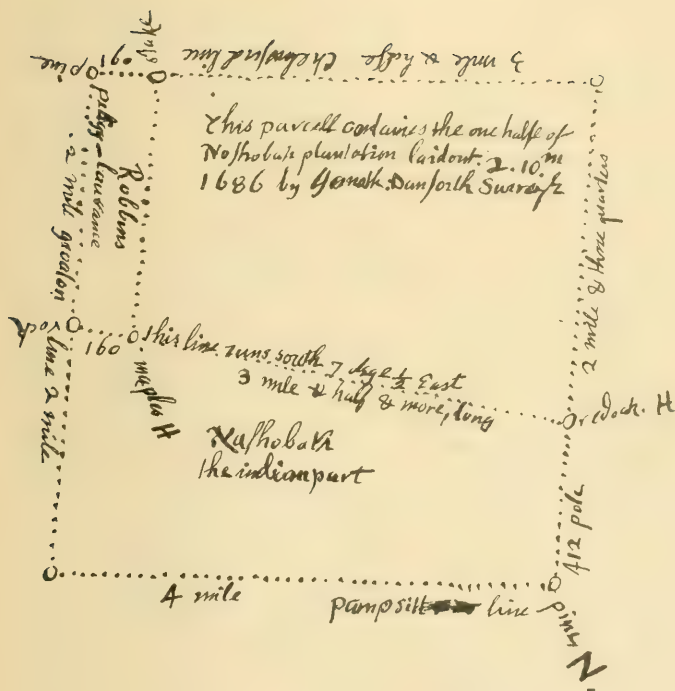 3 mile & halfe Chelmsford line
pine
091
This parcell containes the one halfe of
Nashobah plantation laidout. 2. 10.m
1686 by Jonath. Danforth Survey
Robbins
2 mile groaton
line 2 mile
2 mile & three quarters
rock
091
maple H
this line runs south 7 degr ½ East
3 mile & half & more, long
redoak. H
Nashobah
the indian part
412 pole
4 mile
pampsitt line
N